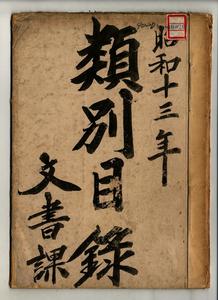 昭和十三年
類別目録
文書課